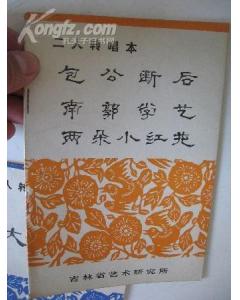 二人转唱本
包公断后
南郭学艺
两朵小红花
吉林省艺术研究所
大